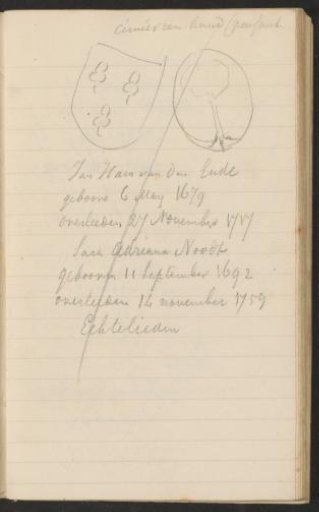 cimier een hand
Jan Hars van den Ende
geboore 6 May 1679
overleeden 27 November 1717
Sara Adriana Noodt
gebooren 11 September 1692
overleeden 14 november 1759
Echtelieden